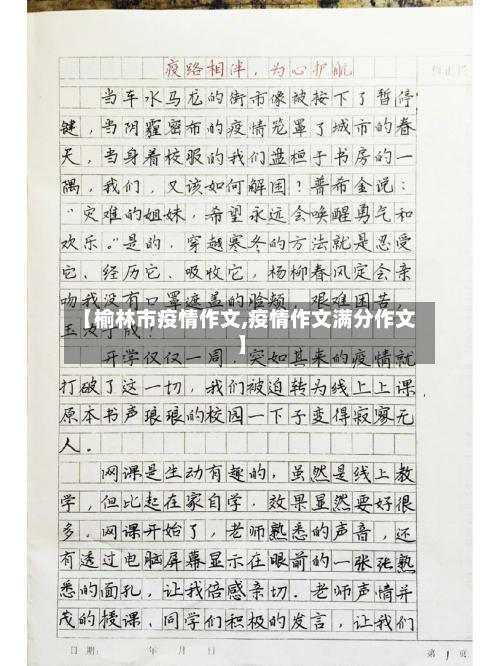 疫路相伴，为心护航
当车水马龙的街市像被按下了暂停
键，当阴霾密布的疫情笼罩了城市的春
天，当身着校服的我们盘桓于书房的一
隅，我们，又该如何解围？普希金说：
“灾难的姐妹，希望永远会唤醒勇气和
欢乐。”是的，穿越寒冬的方法就是忍受
它、经历它、吸收它，杨柳春风定会亲
吻我没有口罩遮盖的脸颊，艰难困苦，
【榆林市疫情作文,疫情作文满分作文
】
开学仅仅一周，突如其来的疫情就
打破了这一切，我们被迫转为线上上课，
原本书声琅琅的校园一下子变得寂寥无
人。
网课是生动有趣的，虽然是线上教
学，但比起在家自学，效果显然要好很
多。网课开始了，老师熟悉的声音，还
有透过电脑屏幕显示在眼前的一张张熟
悉的面孔，让我倍感亲切．老师声情并
茂的授课、同学们积极的发言，让我们
日期： 年 月 日 第 1 页